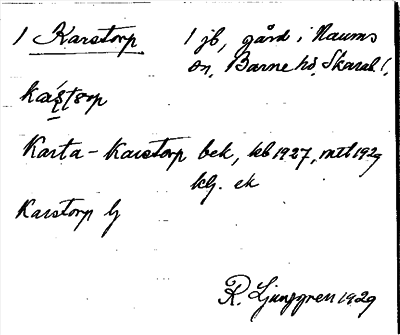 1 Karstorp 1 jb, gård i Naums
sn, Barne hd, Skarab. l.,
Karta - Karstorp bek, kb 1927, mtl 1929
kg. ek
Karstorp lj
R. Ljunggren 1929